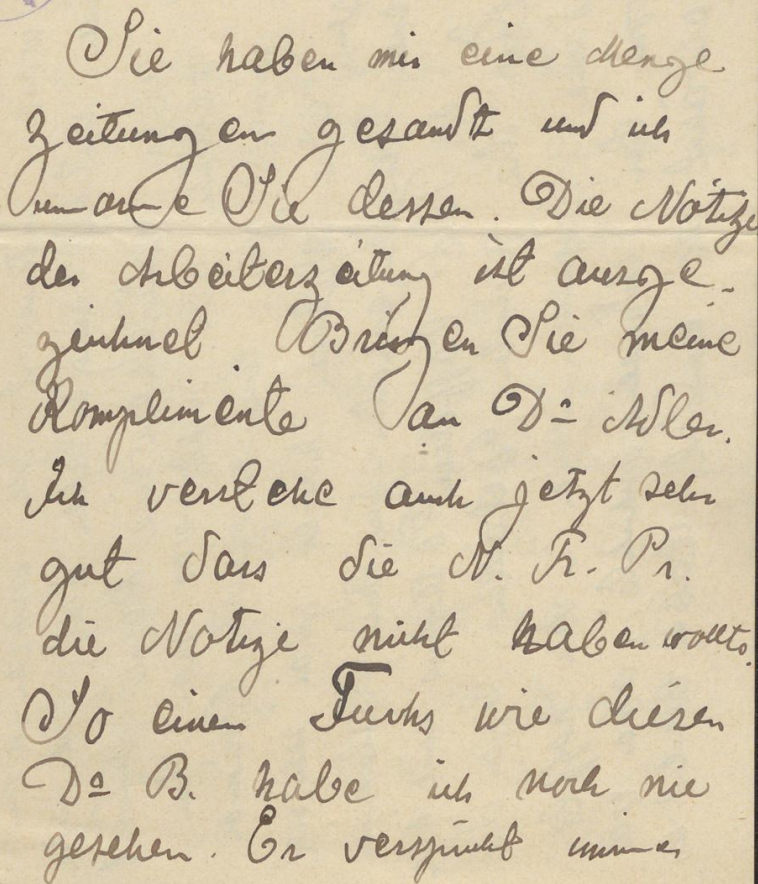 Sie haben mir eine Menge
Zeitungen gesandt und ich
umarme Sie dessen. Die Notize
der Arbeiterzeitung ist ausge-
zeichnet Bringen Sie meine
Komplimente an Dr Adler.
Ich verstehe auch jetzt sehr
gut dass die N. Fr. Pr.
die Notize nicht haben wollte.
So einen Fuchs wie diesen
Dr B. habe ich noch nie
gesehen. Er verspricht immer